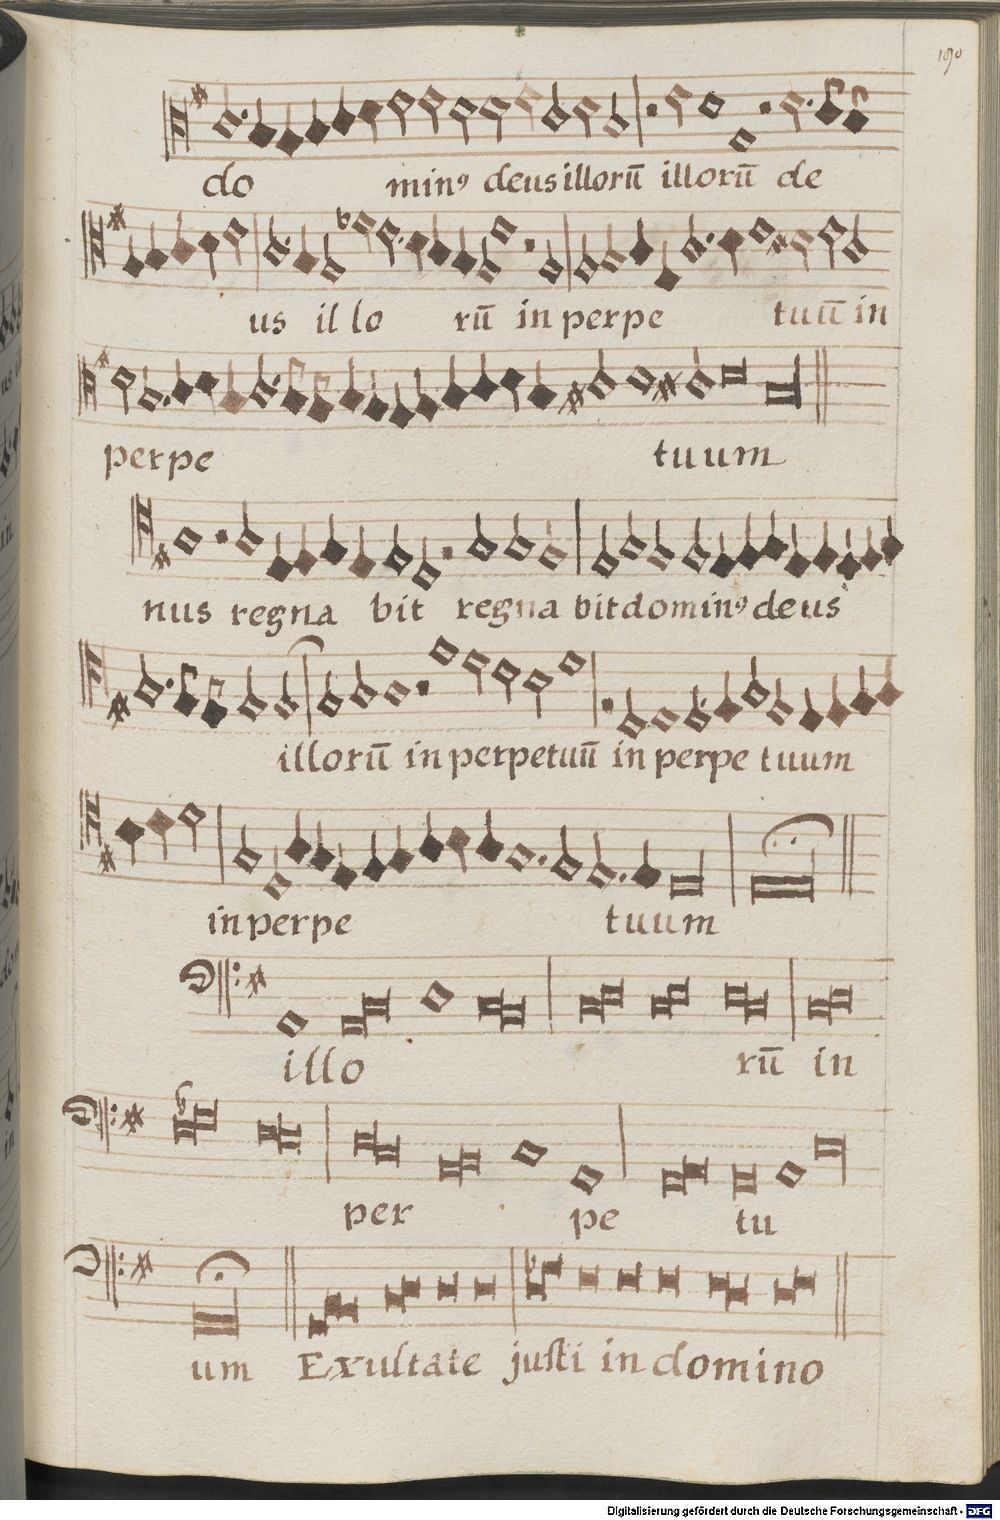 190
do minꝰ deus illorū illorū de
us il lo rū in perpe tuū in
perpe tuum
nus regna bit regna bit dominꝰ deus
illorū in perpetuū in perpe tuum
in perpe tuum
illo rū in
per pe tu
um Exultate justi in domino
Digitalisierung gefördert durch die Deutsche Forschungsgemeinschaft - DFG